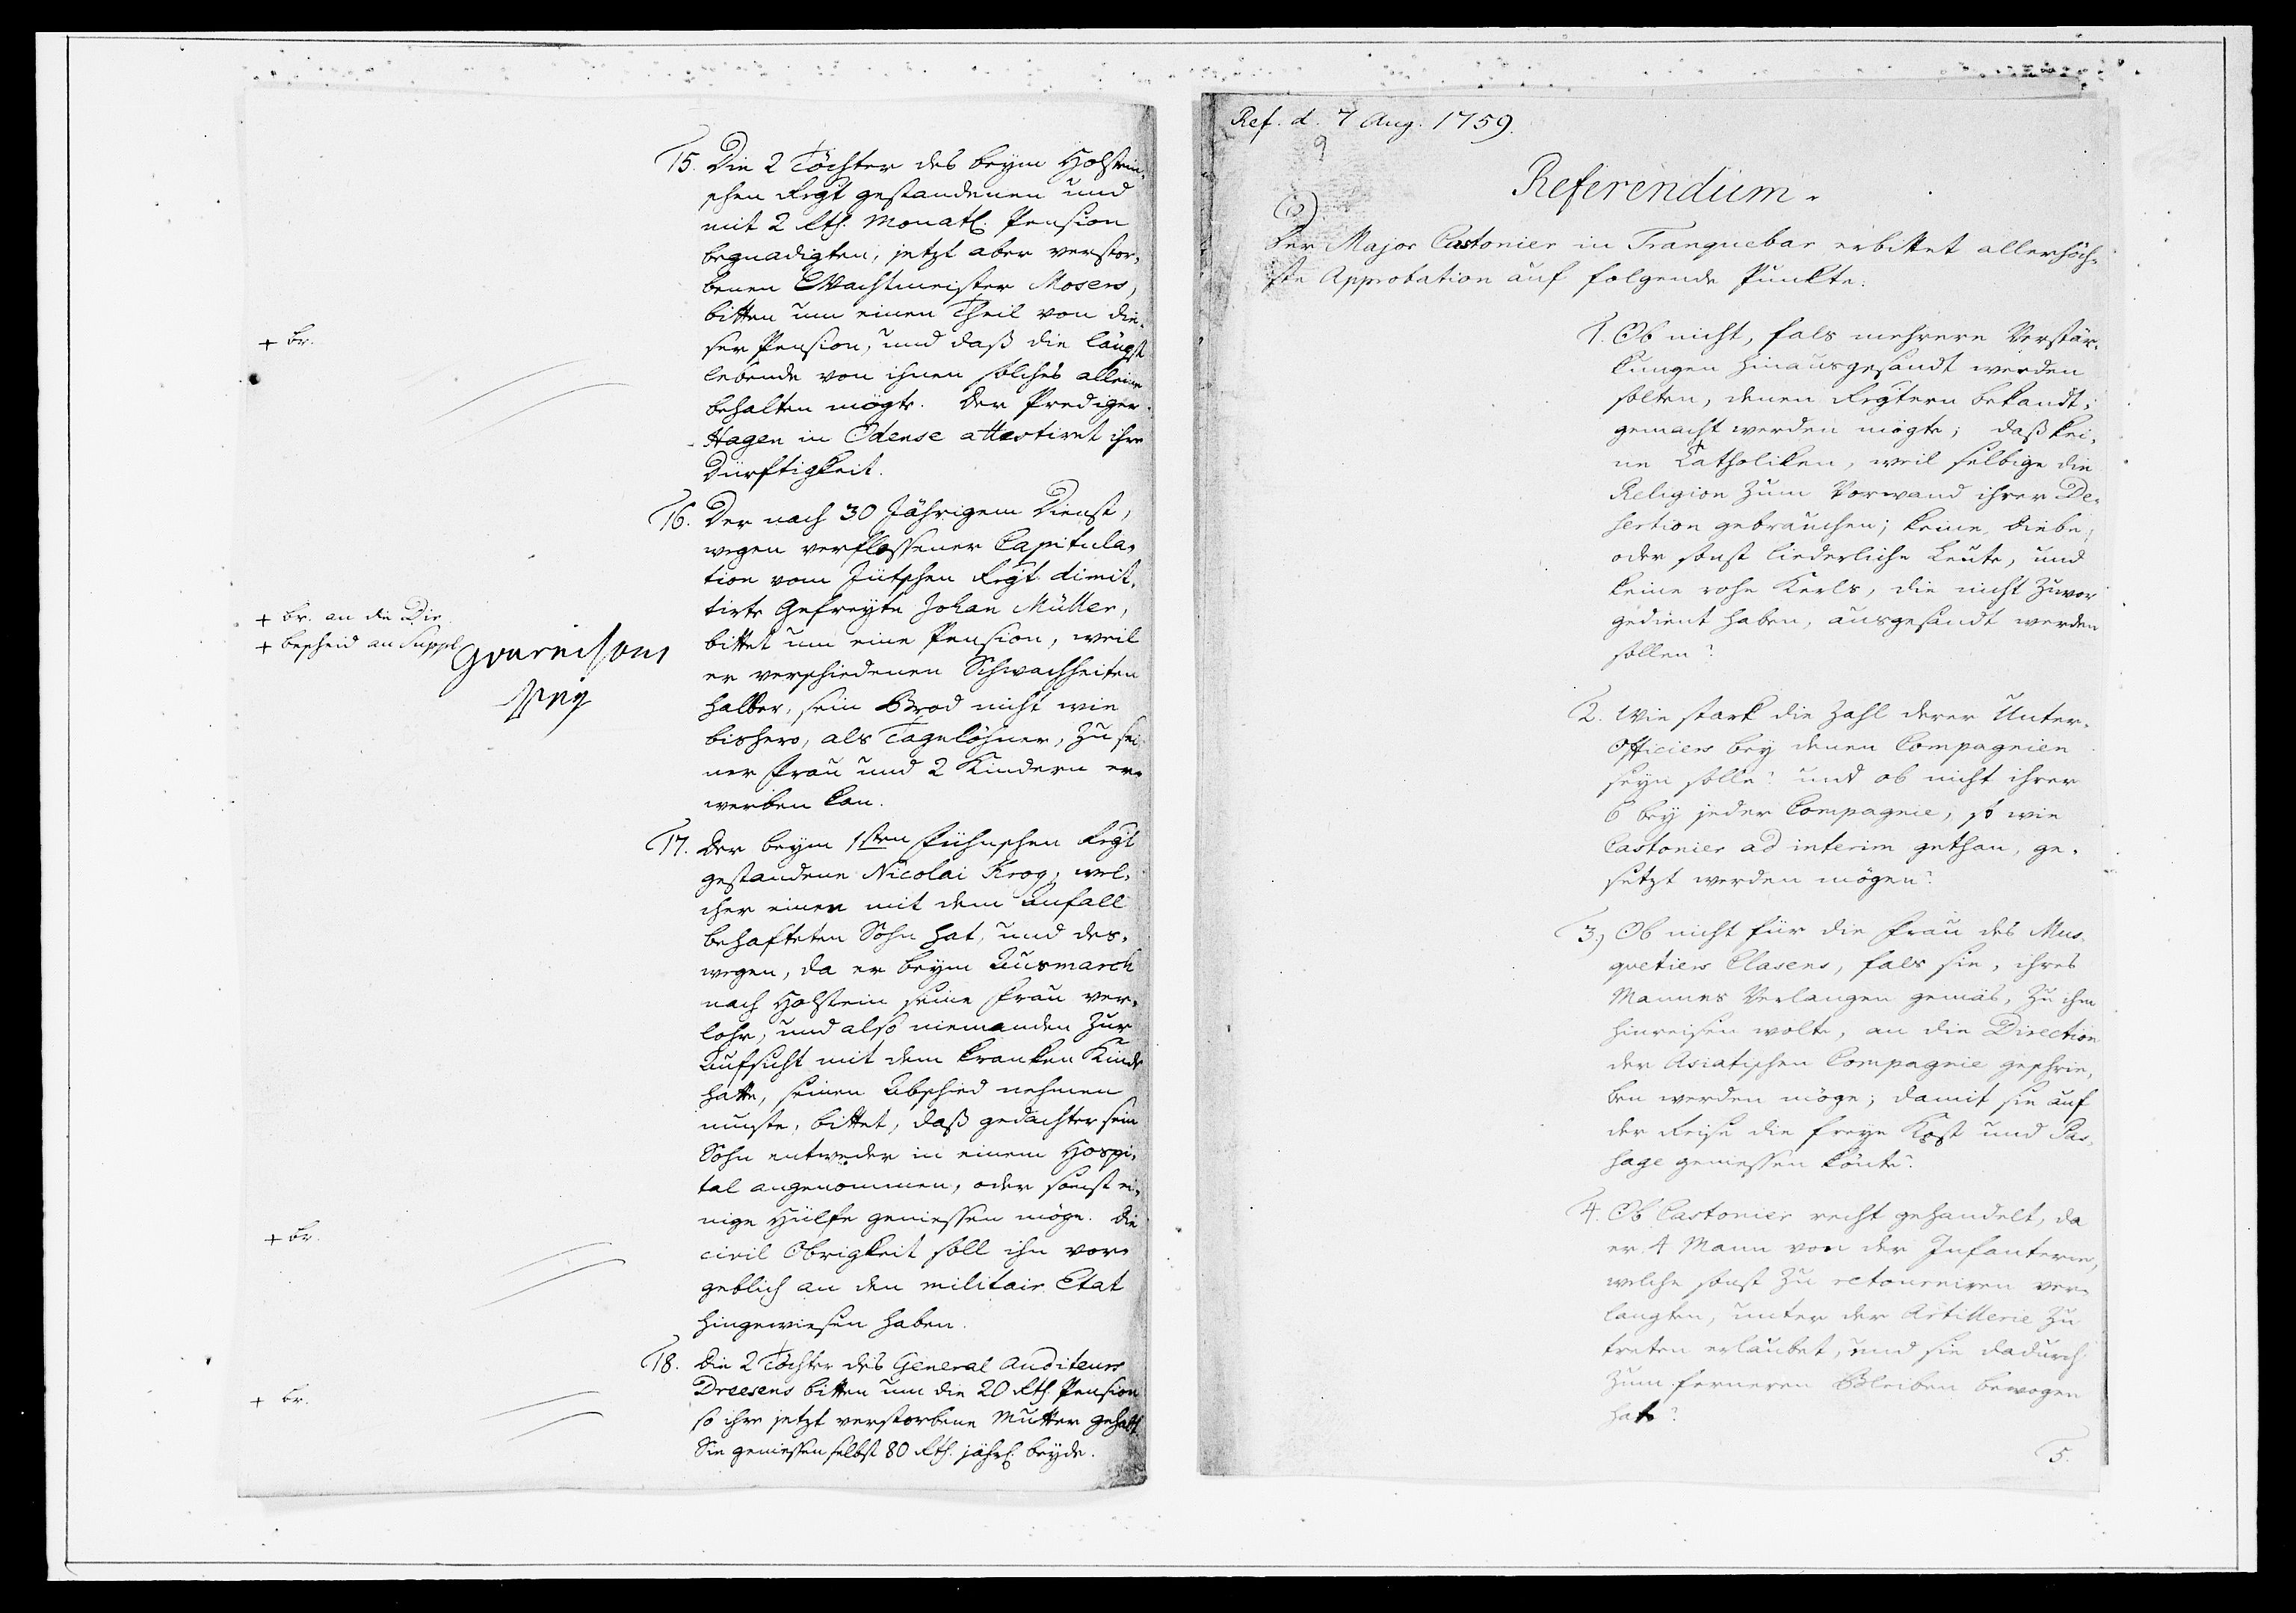 15. Die 2 Töchter des beym Holstein-
schen Regt gestandenen und
mit 2 Rth. Monatl. Pension
begnadigten, jetzt aber verstor-
benen Wachtmeister Mosers,
bitten um einen Theil von die-
ser Pension, und daß die längst
lebende von ihnen solches allein
behalten mögte. Der Prediger
Hagen in Odense attestiret ihre
Dürftigkeit.
+ br.
16. Der nach 30 Jährigem Dienst,
wegen verflossener Capitula-
tion vom Jütschen Regt. dimit-
tirte Gefreyte Johan Müller,
bittet um eine Pension, weil
er verschiedenen Schwachheiten
halber, sein Brod nicht wie
bishero, als Tagelöhner, zu sei-
ner Frau und 2 Kindern er-
werben kan.
+ br. an die Dir.
+ bescheid an Suppl
17. Der beym 1sten Fühnschen Regt
gestandene Nicolai Krog, wel-
cher einen mit dem Unfall
behafteten Sohn hat, und des-
wegen, da er beym Ausmarch
nach Holstein seine Frau ver-
lohr, und also niemanden zur
Aufsicht mit dem kranken Kinde
hatte, seinen Abschied nehmen
muste, bittet, daß gedachter sein
Sohn entweder in einem Hospi-
tal angenommen, oder sonst ei-
nige Hülfe geniessen möge. Die
civil Obrigkeit soll ihn ver-
geblich an den militair Etat
hingewiesen haben.
+ br.
18. Die 2 Töchter des General Auditeurs
Dreesens bitten um die 20 Rth. Pension
so ihre jetzt verstorbene Mutter gehabt.
Sie geniessen selbst 80 Rth. jährl. beyde.
+ br.
Ref. d. 7 Aug. 1759.
9
Referendum.
Der Major Castonier in Tranquebar erbittet allerhöch-
ste Approbation auf folgende Punkte.
1. Ob nicht, fals mehrere Verstär-
kungen hinausgesandt werden
solten, denen Regtern bekandt-
gemacht werden mögte, daß kei-
ne Catholiken, weil selbige die
Religion zum Vorwand ihrer De-
sertion gebrauchen; keine Diebe,
oder sonst liederliche Leute, und
keine rohe Kerls, die nicht zuvor
gedient haben, ausgesandt werden
sollen?
2. Wie stark die Zahl derer Unter-
Officiers bey denen Compagnien
seyn solle? und ob nicht ihrer
6 bey jeder Compagnie, so wie
Castonier ad interim gethan, ge-
setzt werden mögen?
3.) Ob nicht für die Frau des Mus-
quetiers Clasens, fals sie, ihres
Mannes Verlangen gemäs, zu ihm
hinreisen wolte, an die Direction
der Asiatischen Compagnie geschrie-
ben werden möge; damit sie auf
der Reise die freye Kost und Pas-
sage geniessen könte?
4. Ob Castonier recht gehandelt, da
er 4 Mann von der Infanterie,
welche sonst zu retourniren ver-
langten, unter der Artillerie zu
treten erlaubet, und sie dadurch
zum ferneren Bleiben bewogen
hat?
5.